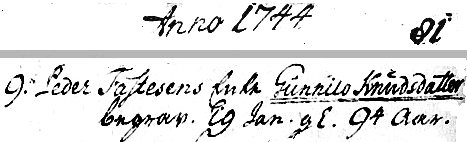 Anno 1744 81
9. Peder Tastesens Enke Gunnild Knudsdatter
begrav. d 9 Jan. gl. 94 Aar.